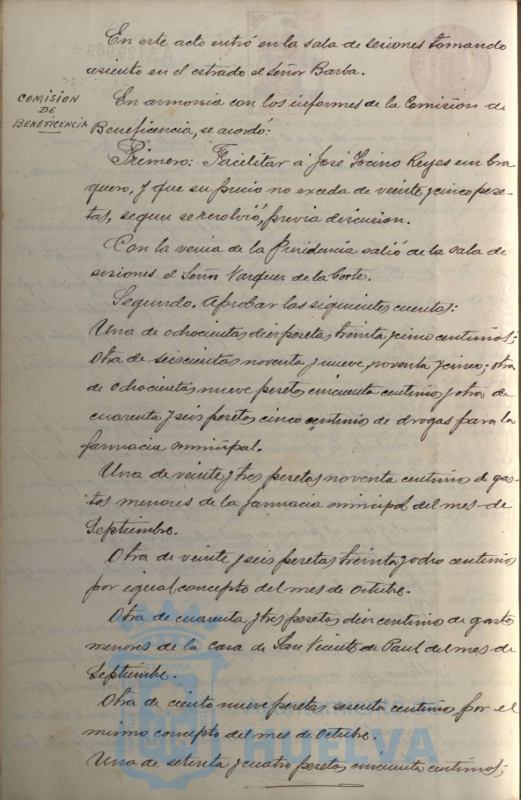 En este acto entró en la sala de sesiones tomando
asiento en el estrado el Señor Barba.
COMISION
DE
BENEFICENCIA
En armonia con los informes de la Comision de
Beneficencia, se acordó:
Primero: Facilitar á José Reyes un bra
guero, y que su precio no exceda de veinte y cinco pese-
tas, segun se resolvió, previa discusion.
Con la venia de la Presidencia salió de la sala de
sesiones el Señor Vazquez de la Corte.
Segundo. Aprobar las siguientes cuentas:
Una de ochocientas diez pesetas treinta y cinco centimos;
otra de seiscientas noventa y nueve, noventa y cinco; otra
de ochocientas nueve pesetas cincuenta centimos y otra de
cuarenta y seis pesetas cinco centimos de drogas para la
farmacia municipal.
Una de veinte y tres pesetas noventa centimos de gas-
tos menores de la farmacia municipal del mes de
Septiembre.
Otra de veinte y seis pesetas treinta y ocho centimos
por igual concepto del mes de Octubre.
Otra de cuarenta y tres pesetas diez centimos de gastos
menores de la casa de San Vicente de Paul del mes de
Septiembre.
Otra de ciento nueve pesetas sesenta centimos por el
mismo concepto del mes de Octubre.
Una de setenta y cuatro pesetas cincuenta centimos;
Ayuntamiento de
HUELVA